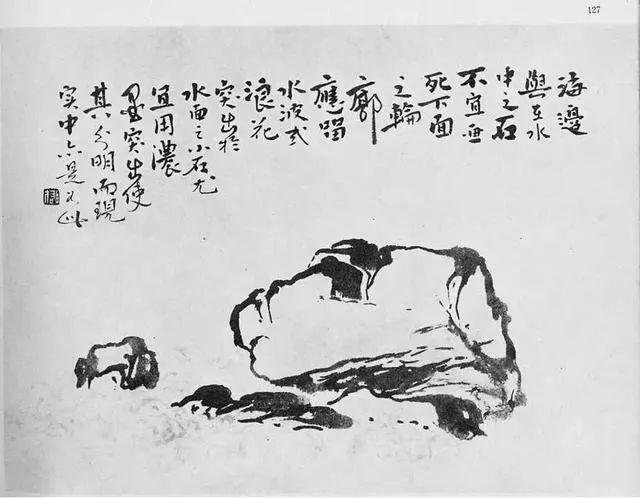 127
海邊
與在水
中之石
不宜畫
死下面
之輪
廓
應
水波或
浪花
突出於
水面之小石尤
宜用濃
墨突出使
其分明而現
实中亦是如此